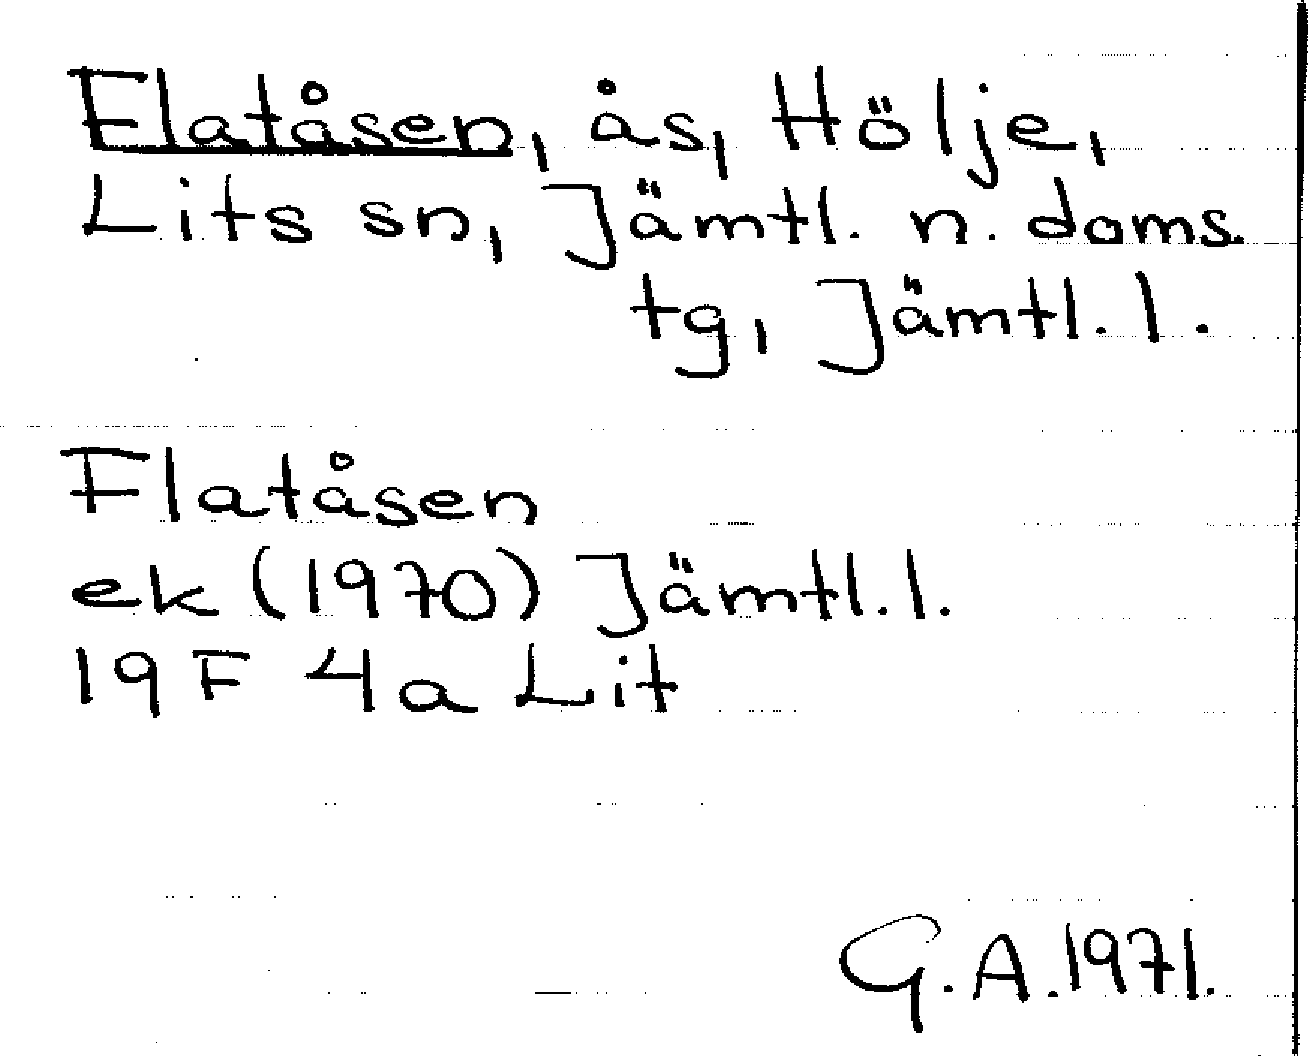 Flatåsen, ås, Hölje,
Lits sn, Jämtl. n. doms.
tg, Jämtl. l.
Flatåsen
ek (1970) Jämtl. l.
19 F 4a Lit
G. A. 1971.